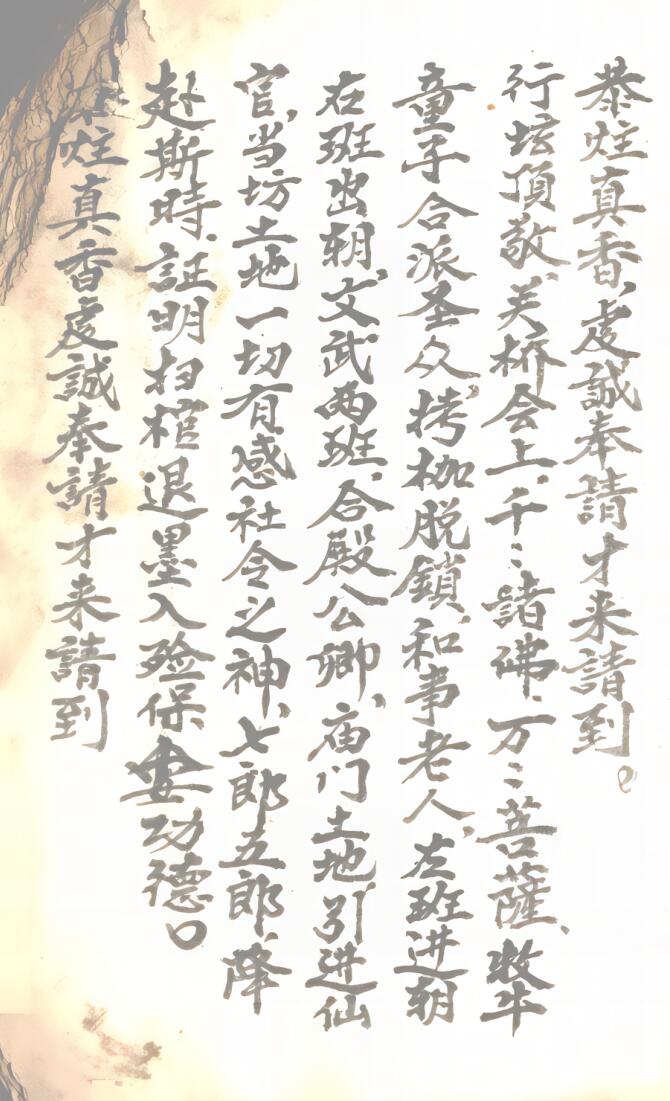 恭炷真香，虔誠奉請才来請到。
行坛頂敬、关桥会上、千〻諸佛、万〻菩薩、牧牛
童子合派圣众、拷枷脱鎖、和事老人、左班进朝
右班出朝、文武两班、合殿公卿、庙门土地引进仙
官，当坊土地一切有感社令之神、七郎五郎、降
赴斯時、証明扫棺退墨入殓保安功德。
恭炷真香虔誠奉請才来請到